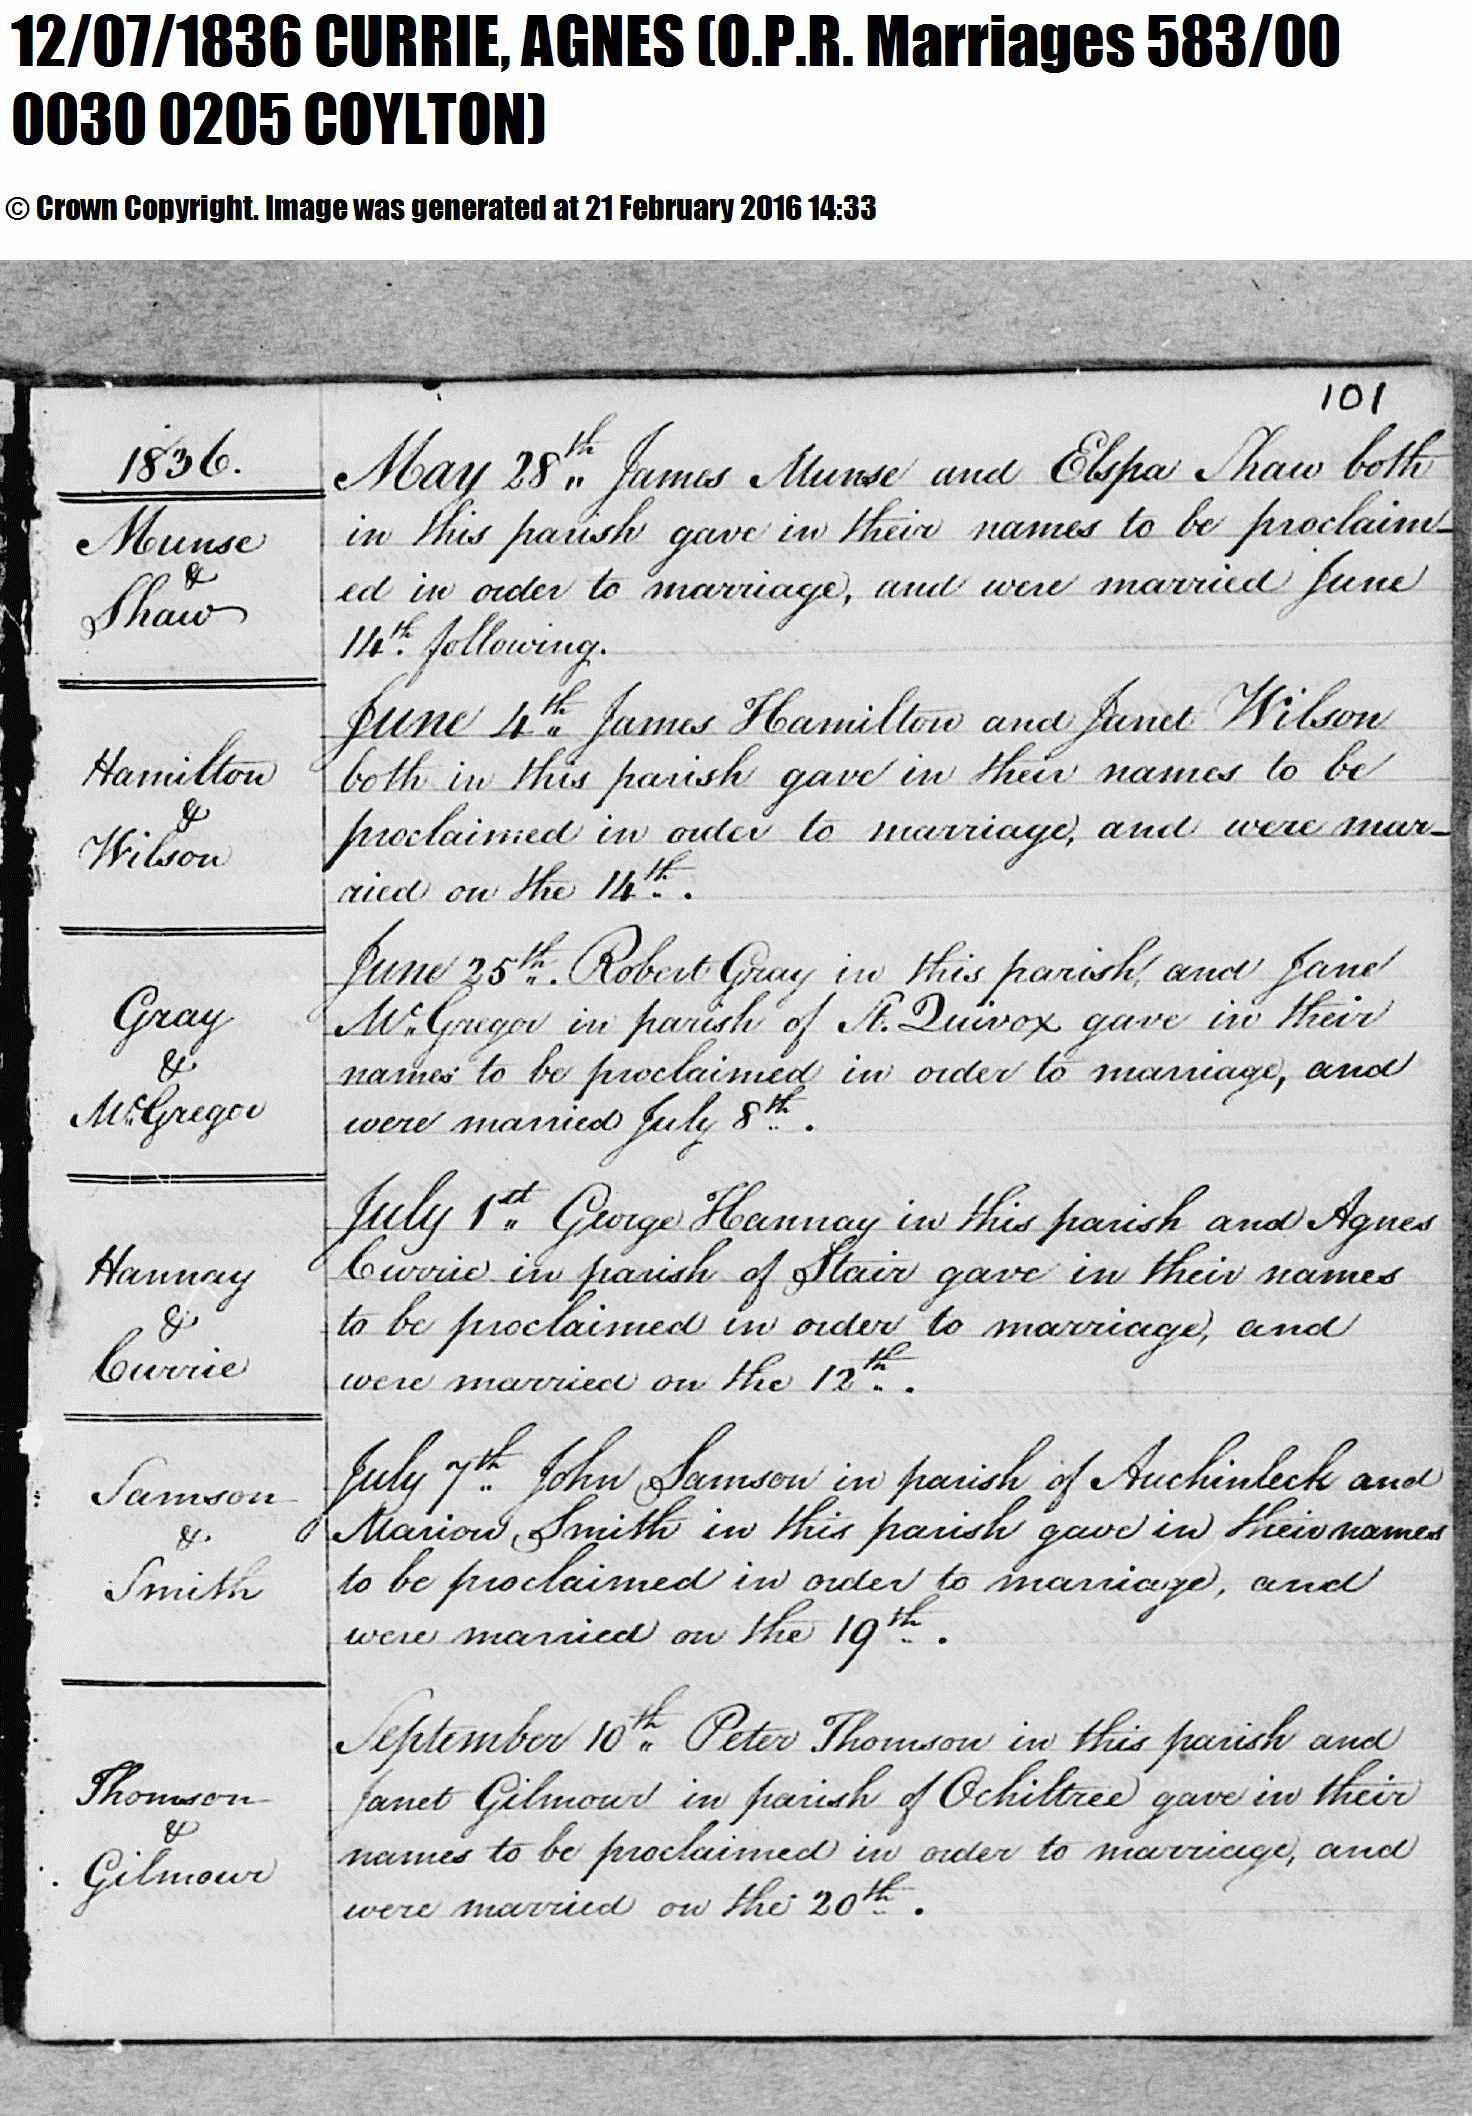 12/07/1836 CURRIE, AGNES (O.P.R. Marriages 583/00
0030 0205 COYLTON)
© Crown Copyright. Image was generated at 21 February 2016 14:33
101
1836.
Munse
&
Shaw
May 28th James Munse and Elspa Shaw both
in this parish gave in their names to be proclaim-
ed in order to marriage, and were married June
14th. following.
Hamilton
&
Wilson
June 4th James Hamilton and Janet Wilson
both in this parish gave in their names to be
proclaimed in order to marriage, and were mar-
ried on the 14th.
Gray
&
McGregor
June 25th. Robert Gray in this parish, and Jane
McGregor in parish of St. Quivox gave in their
names to be proclaimed in order to marriage, and
were married July 8th.
Hannay
&
Currie
July 1st George Hannay in this parish and Agnes
Currie in parish of Stair gave in their names
to be proclaimed in order to marriage, and
were married on the 12th.
Samson
&
Smith
July 7th John Samson in parish of Auchinleck and
Marion Smith in this parish gave in their names
to be proclaimed in order to marriage, and
were married on the 19th.
Thomson
&
Gilmour
September 10th Peter Thomson in this parish and
Janet Gilmour in parish of Ochiltree gave in their
names to be proclaimed in order to marriage, and
were married on the 20th.